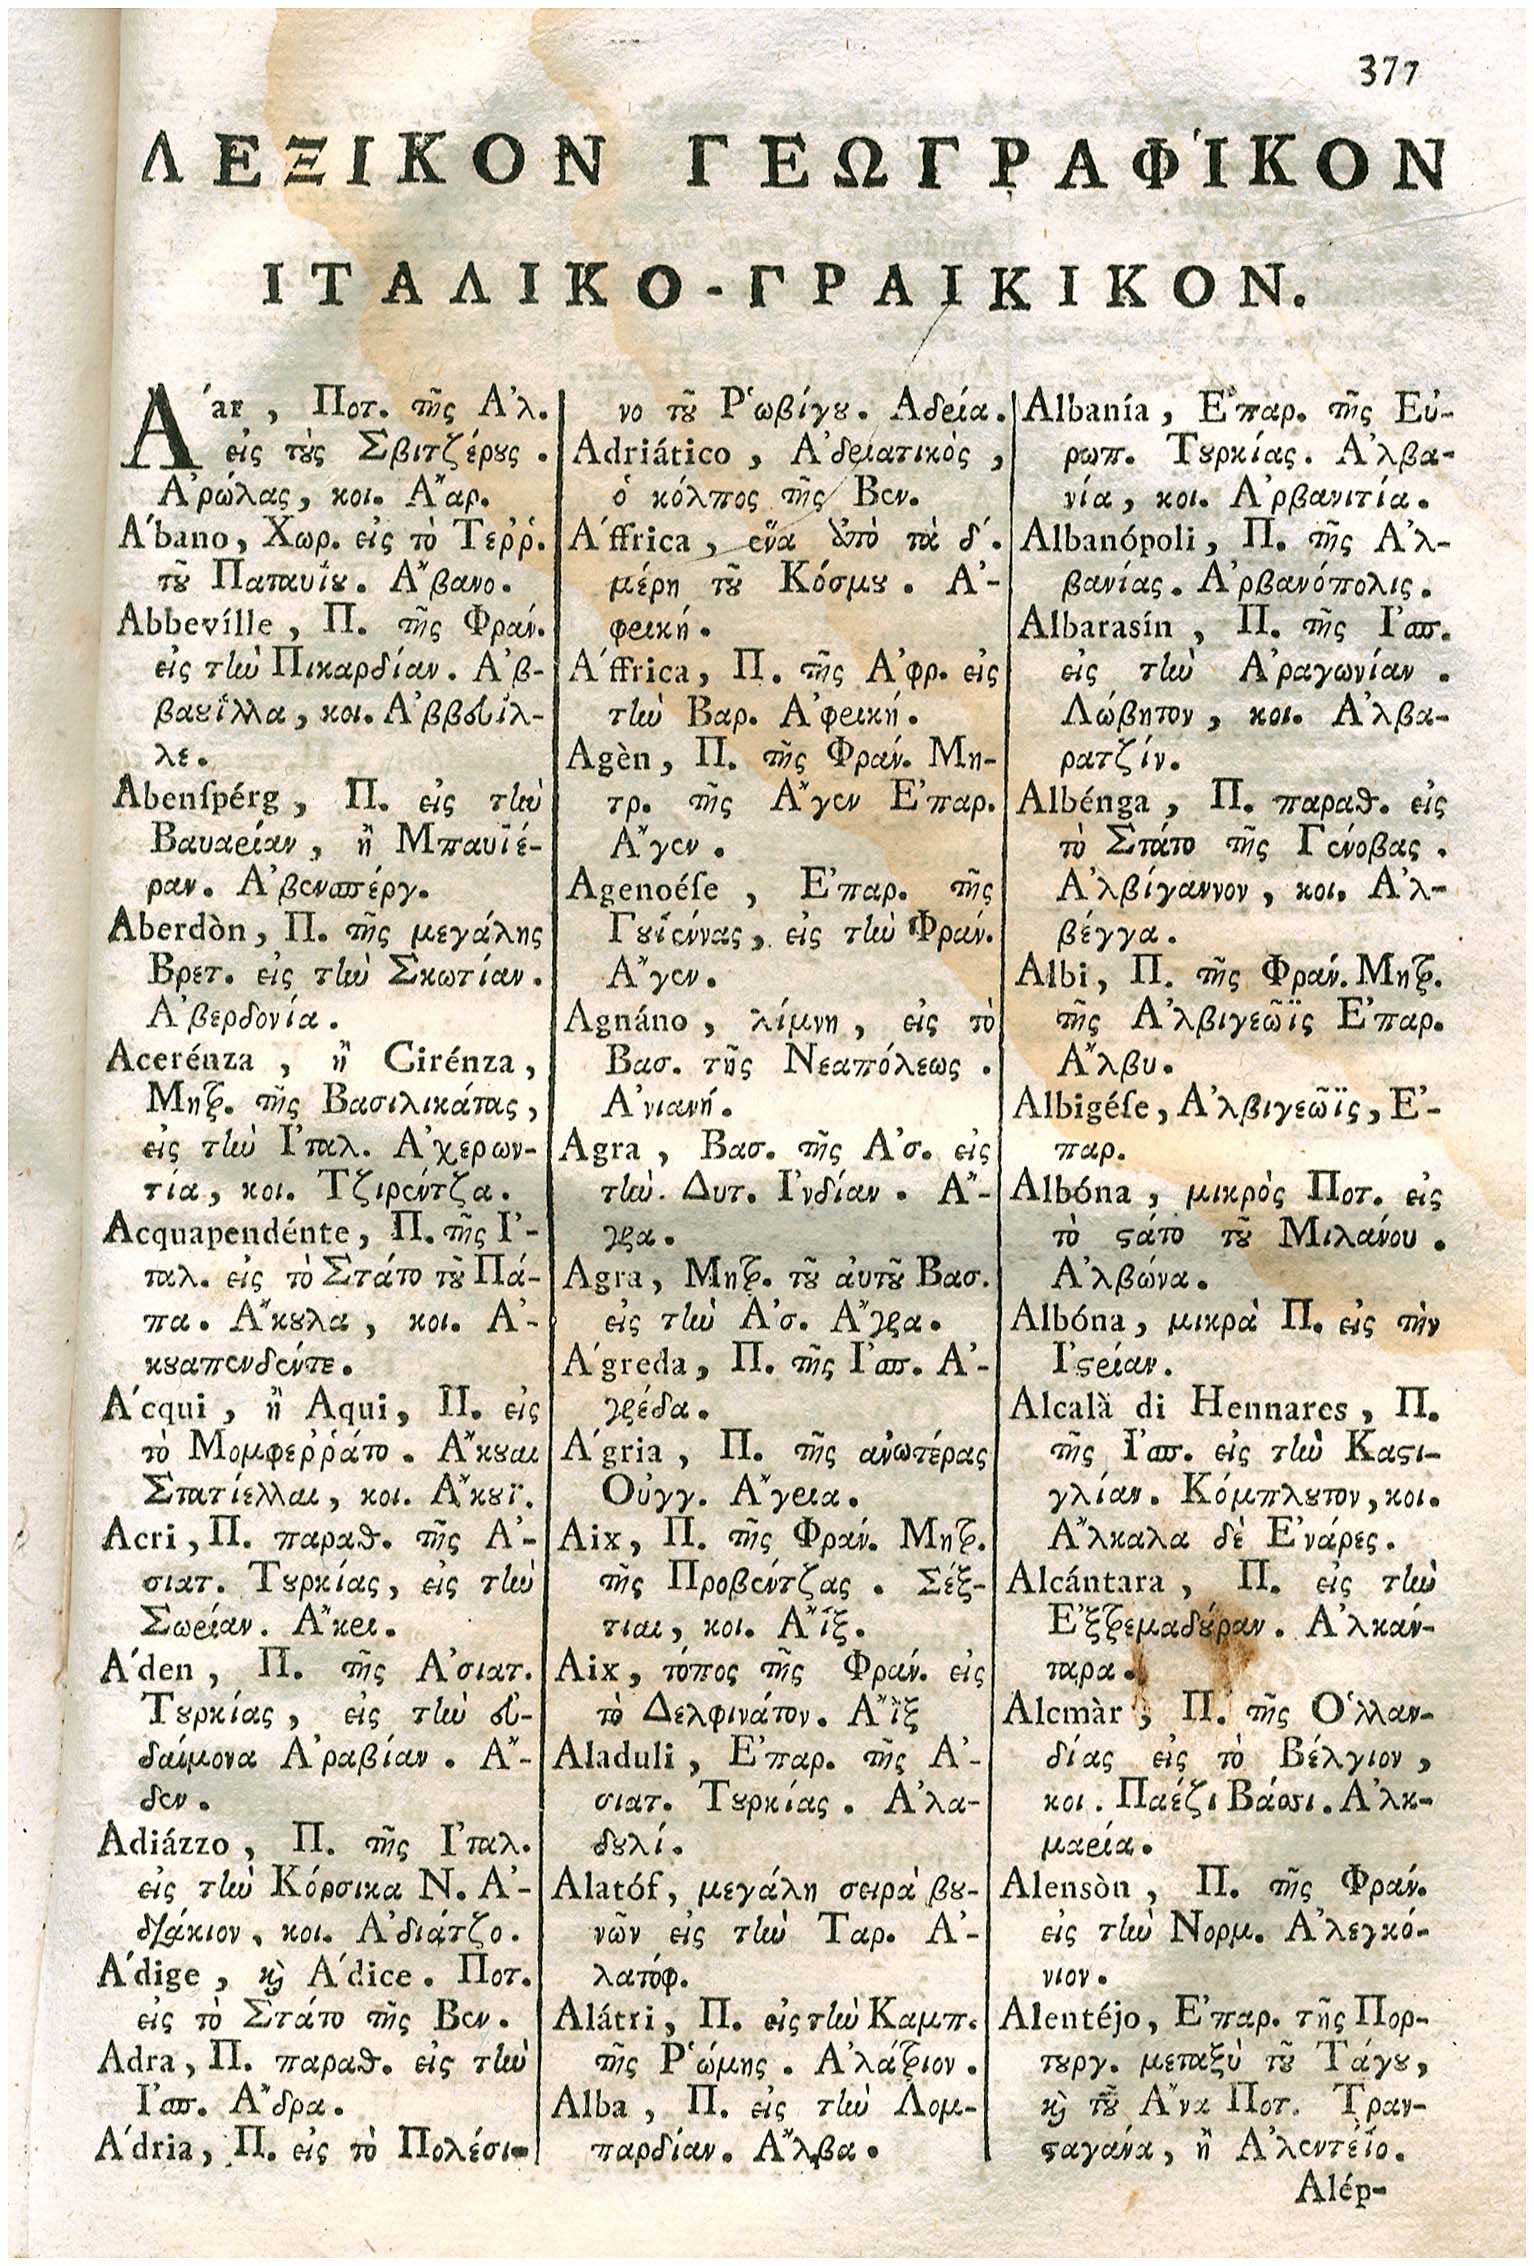 377
ΛΕΞΙΚΟΝ ΓΕΩΓΡΑΦΙΚΟΝ
ΙΤΑΛΙΚΟ-ΓΡΑΙΚΙΚΟΝ.
Α'ar, Ποτ. τῆς Α'λ.
εἰς τὸς Σβιτζέρȣς.
Α'ρώλας, κοι. Α῎αρ.
Α'bano, Χωρ. εἰς τὸ Τερρ.
τȣ͂ Παταυΐȣ. Α῎βανο.
Abbevílle, Π. τῆς Φράν.
εἰς τὴν Πικαρδίαν. Α'β-
βαȣΐλλα, κοι. Α'ββευΐλ-
λε.
Abenſpérg, Π. εἰς τὴν
Βαυαρίαν, ἢ Μπαυϊέ-
ραν. Α'βενσπέργ.
Aberdòn, Π. τῆς μεγάλης
Βρετ. εἰς τὴν Σκωτίαν.
Α'βερδονία.
Acerénza, ἢ Cirénza,
Μητρ. τῆς Βασιλικάτας,
εἰς τὴν Ι'ταλ. Α'χερων-
τία, κοι. Τζιρέντζα.
Acquapendénte, Π. τῆς Ι'-
ταλ. εἰς τὸ Στάτο τȣ͂ Πά-
πα. Α῎κȣλα, κοι. Α'-
κȣαπενδέντε.
A'cqui, ἢ Aqui, Π. εἰς
τὸ Μομφερράτο. Α῎κȣαι
Στατίελλαι, κοι. Α῎κȣϊ.
Acri, Π. παραθ. τῆς Α'-
σιατ. Τȣρκίας, εἰς τὴν
Σωρίαν. Α῎κρι.
A'den, Π. τῆς Α'σιατ.
Τȣρκίας, εἰς τὴν εὐ-
δαίμονα Α'ραβίαν. Α῎-
δεν.
Adiázzo, Π. τῆς Ι'ταλ.
εἰς τὴν Κόρσικα Ν. Α'-
δζάκιον, κοι. Α'διάτζο.
A'dige, καὶ A'dice. Ποτ.
εἰς τὸ Στάτο τῆς Βεν.
Adra, Π. παραθ. εἰς τὴν
Ι'σπ. Α῎δρα.
A'dria, Π. εἰς τὸ Πολέσι-
νο τȣ͂ Ρ'ωβίγȣ. Αδρία.
Adriático, Α'δριατικὸς,
ὁ κόλπος τῆς Βεν.
A'ffrica, ἕνα ἀπὸ τὰ δ'.
μέρη τȣ͂ Κόσμȣ. Α'-
φρική.
A'ffrica, Π. τῆς Α'φρ. εἰς
τὴν Βαρ. Α'φρική.
Agèn, Π. τῆς Φράν. Μη-
τρ. τῆς Α῎γεν Ε'παρ.
Α῎γεν.
Agenoéſe, Ε'παρ. τῆς
Γȣϊέννας, εἰς τὴν Φράν.
Α῎γεν.
Agnáno, λίμνη, εἰς τὸ
Βασ. τῆς Νεαπόλεως.
Α'νιανή.
Agra, Βασ. τῆς Α'σ. εἰς
τὴν. Δυτ. Ι'νδίαν. Α῎-
γρα.
Agra, Μητρ. τȣ͂ ἀυτȣ͂ Βασ.
εἰς τὴν Α'σ. Α῎γρα.
A'greda, Π. τῆς Ι'σπ. Α'-
γρέδα.
A'gria, Π. τῆς ἀνωτέρας
Οὐγγ. Α῎γρια.
Aix, Π. τῆς Φράν. Μητρ.
τῆς Προβέντζας. Σέξ-
τιαι, κοι. Α῎ϊξ.
Aix, τόπος τῆς Φράν. εἰς
τὸ Δελφινάτον. Α῎ϊξ
Aladuli, Ε'παρ. τῆς Α'-
σιατ. Τȣρκίας. Α'λα-
δȣλί.
Alatóf, μεγάλη σειρὰ βȣ-
νῶν εἰς τὴν Ταρ. Α'-
λατόφ.
Alátri, Π. εἰς τὴν Καμπ.
τῆς Ρ'ώμης. Α'λάτριον.
Alba, Π. εἰς τὴν Λομ-
παρδίαν. Α῎λβα.
Albanía, Ε'παρ. τῆς Εὐ-
ρωπ. Τȣρκίας. Α'λβα-
νία, κοι. Α'ρβανιτία.
Albanópoli, Π. τῆς Α'λ-
βανίας. Α'ρβανόπολις.
Albarasín, Π. τῆς Ι'σπ.
εἰς τὴν Α'ραγωνίαν.
Λώβητον, κοι. Α'λβα-
ρατζίν.
Albénga, Π. παραθ. εἰς
τὸ Στάτο τῆς Γένοβας.
Α'λβίγαννον, κοι. Α'λ-
βέγγα.
Albi, Π. τῆς Φράν. Μητρ.
τῆς Α'λβιγεῶϊς Ε'παρ.
Α῎λβυ.
Albigéſe, Α'λβιγεῶϊς, Ε'-
παρ.
Albóna, μικρὸς Ποτ. εἰς
τὸ ϛάτο τȣ͂ Μιλάνου.
Α'λβώνα.
Albóna, μικρὰ Π. εἰς τὴν
Ι'ϛρίαν.
Alcalà di Hennares, Π.
τῆς Ι'σπ. εἰς τὴν Καϛι-
γλίαν. Κόμπλȣτον, κοι.
Α῎λκαλα δὲ Ε'νάρες.
Alcántara, Π. εἰς τὴν
Ε'ξτρεμαδȣ́ραν. Α'λκάν-
ταρα.
Alcmàr, Π. τῆς Ο'λλαν-
δίας εἰς τὸ Βέλγιον,
κοι. Παέζι Βάσσι. Α'λκ-
μαρία.
Alensòn, Π. τῆς Φράν.
εἰς τὴν Νορμ. Α'λεγκό-
νιον.
Alentéjo, Ε'παρ. τῆς Πορ-
τȣργ. μεταξὺ τȣ͂ Τάγȣ,
καὶ τȣ͂ Α῎να Ποτ. Τραν-
ϛαγάνα, ἢ Α'λεντέϊο.
Alép-